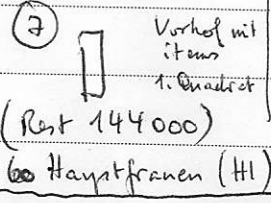 7
Vorhof mit
items
1. Quadrat
(Rest 144000)
60 Hauptfrauen (HL)